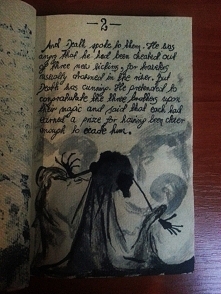 — 2 —
And Death spoke to them. He was
angry that he had been cheated out
of three new victims, for travellers
usually drowned in the river. But
Death was cunning. He pretended to
congratulate the three brothers upon
their magic and said that each had
earned a prize for having been clever
enough to evade him.